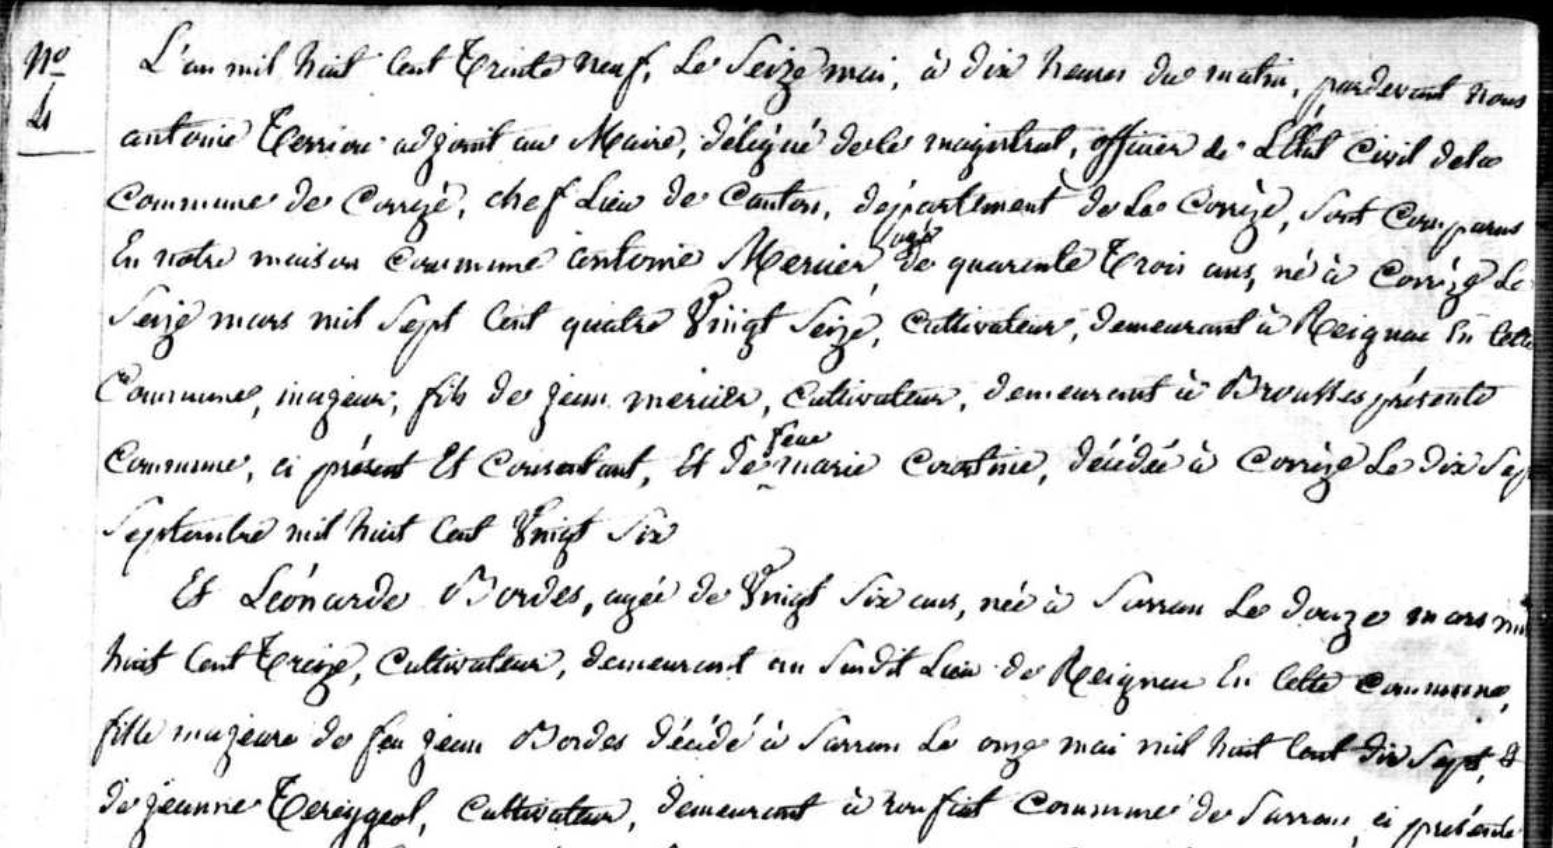 No
4
L'an mil huit cent trente neuf, le seize mai, à dix heures du matin, pardevant nous
antoine Terriou adjoint au Maire, délégué de ce magistrat, officier de L'état Civil dela
Commune de Corrèze, chef Lieu de Canton, département de La Corrèze, sont Comparus
En notre maison Commune antoine Mercier, agé de quarente trois ans, né à Corrèze Le
Seize mars mil Sept Cent quatre Vingt Seize, Cultivateur, demeurant à Reignac En Cette
Commune, majeur, fils de jean mercier, Cultivateur, demeurant à Brousses présente
Commune, ci présent Et Consentant, Et de feue marie , décédée à Corrèze Le dix Sept
Septembre mil huit Cent Vingt Six
Et Léonarde Bordes, agée de Vingt Six ans, née à Sarran Le douze mars mil
huit Cent treize, Cultivateur, demeurant au Susdit Lieu de Reignac En Cette Commune,
fille majeure de feu jean Bordes décédé à Sarran Le onze mai mil huit Cent dix Sept, Et
de jeanne Tereygeol, Cultivateur, demeurant à roufiat Commune de Sarran, ci présente